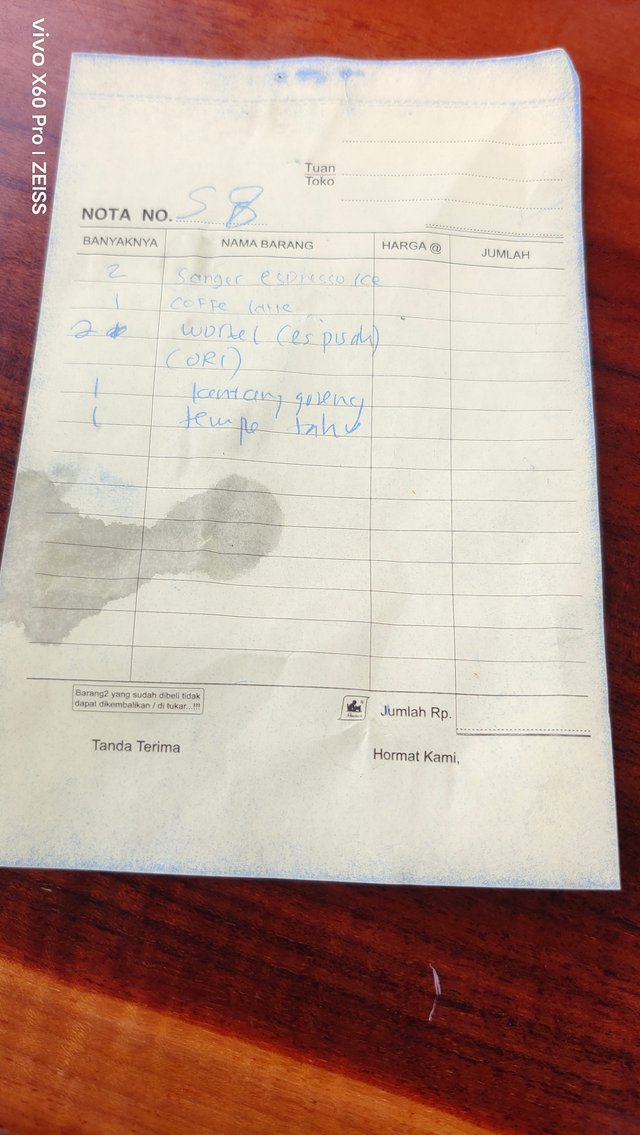 vivo X60 Pro | ZEISS
Tuan
Toko
NOTA NO. S8
BANYAKNYA NAMA BARANG HARGA @ JUMLAH
2 Sanger espresso Ice
1 COFFe latte
2 wortel (es pisah)
(ORI)
1 kentang goreng
1 tempe tahu
Barang2 yang sudah dibeli tidak
dapat dikembalikan / di tukar...!!!
Jumlah Rp.
Tanda Terima
Hormat Kami,